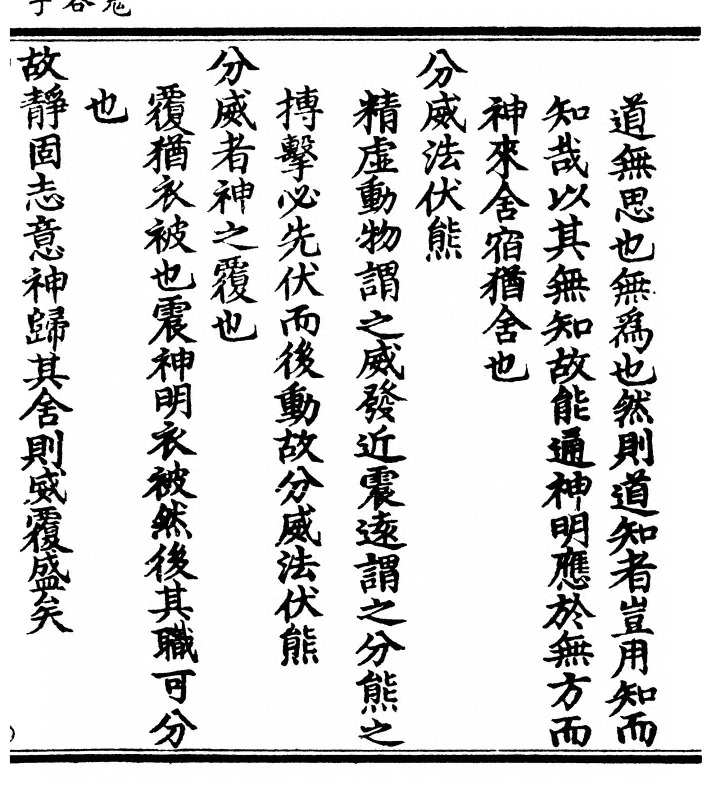 鬼谷子
道無思也無爲也然則道知者豈用知而
知哉以其無知故能通神明應於無方而
神來舍宿猶舍也
分威法伏熊
精虛動物謂之威發近震遠謂之分熊之
搏擊必先伏而後動故分威法伏熊
分威者神之覆也
覆猶衣被也震神明衣被然後其職可分
也
故靜固志意神歸其舍則威覆盛矣